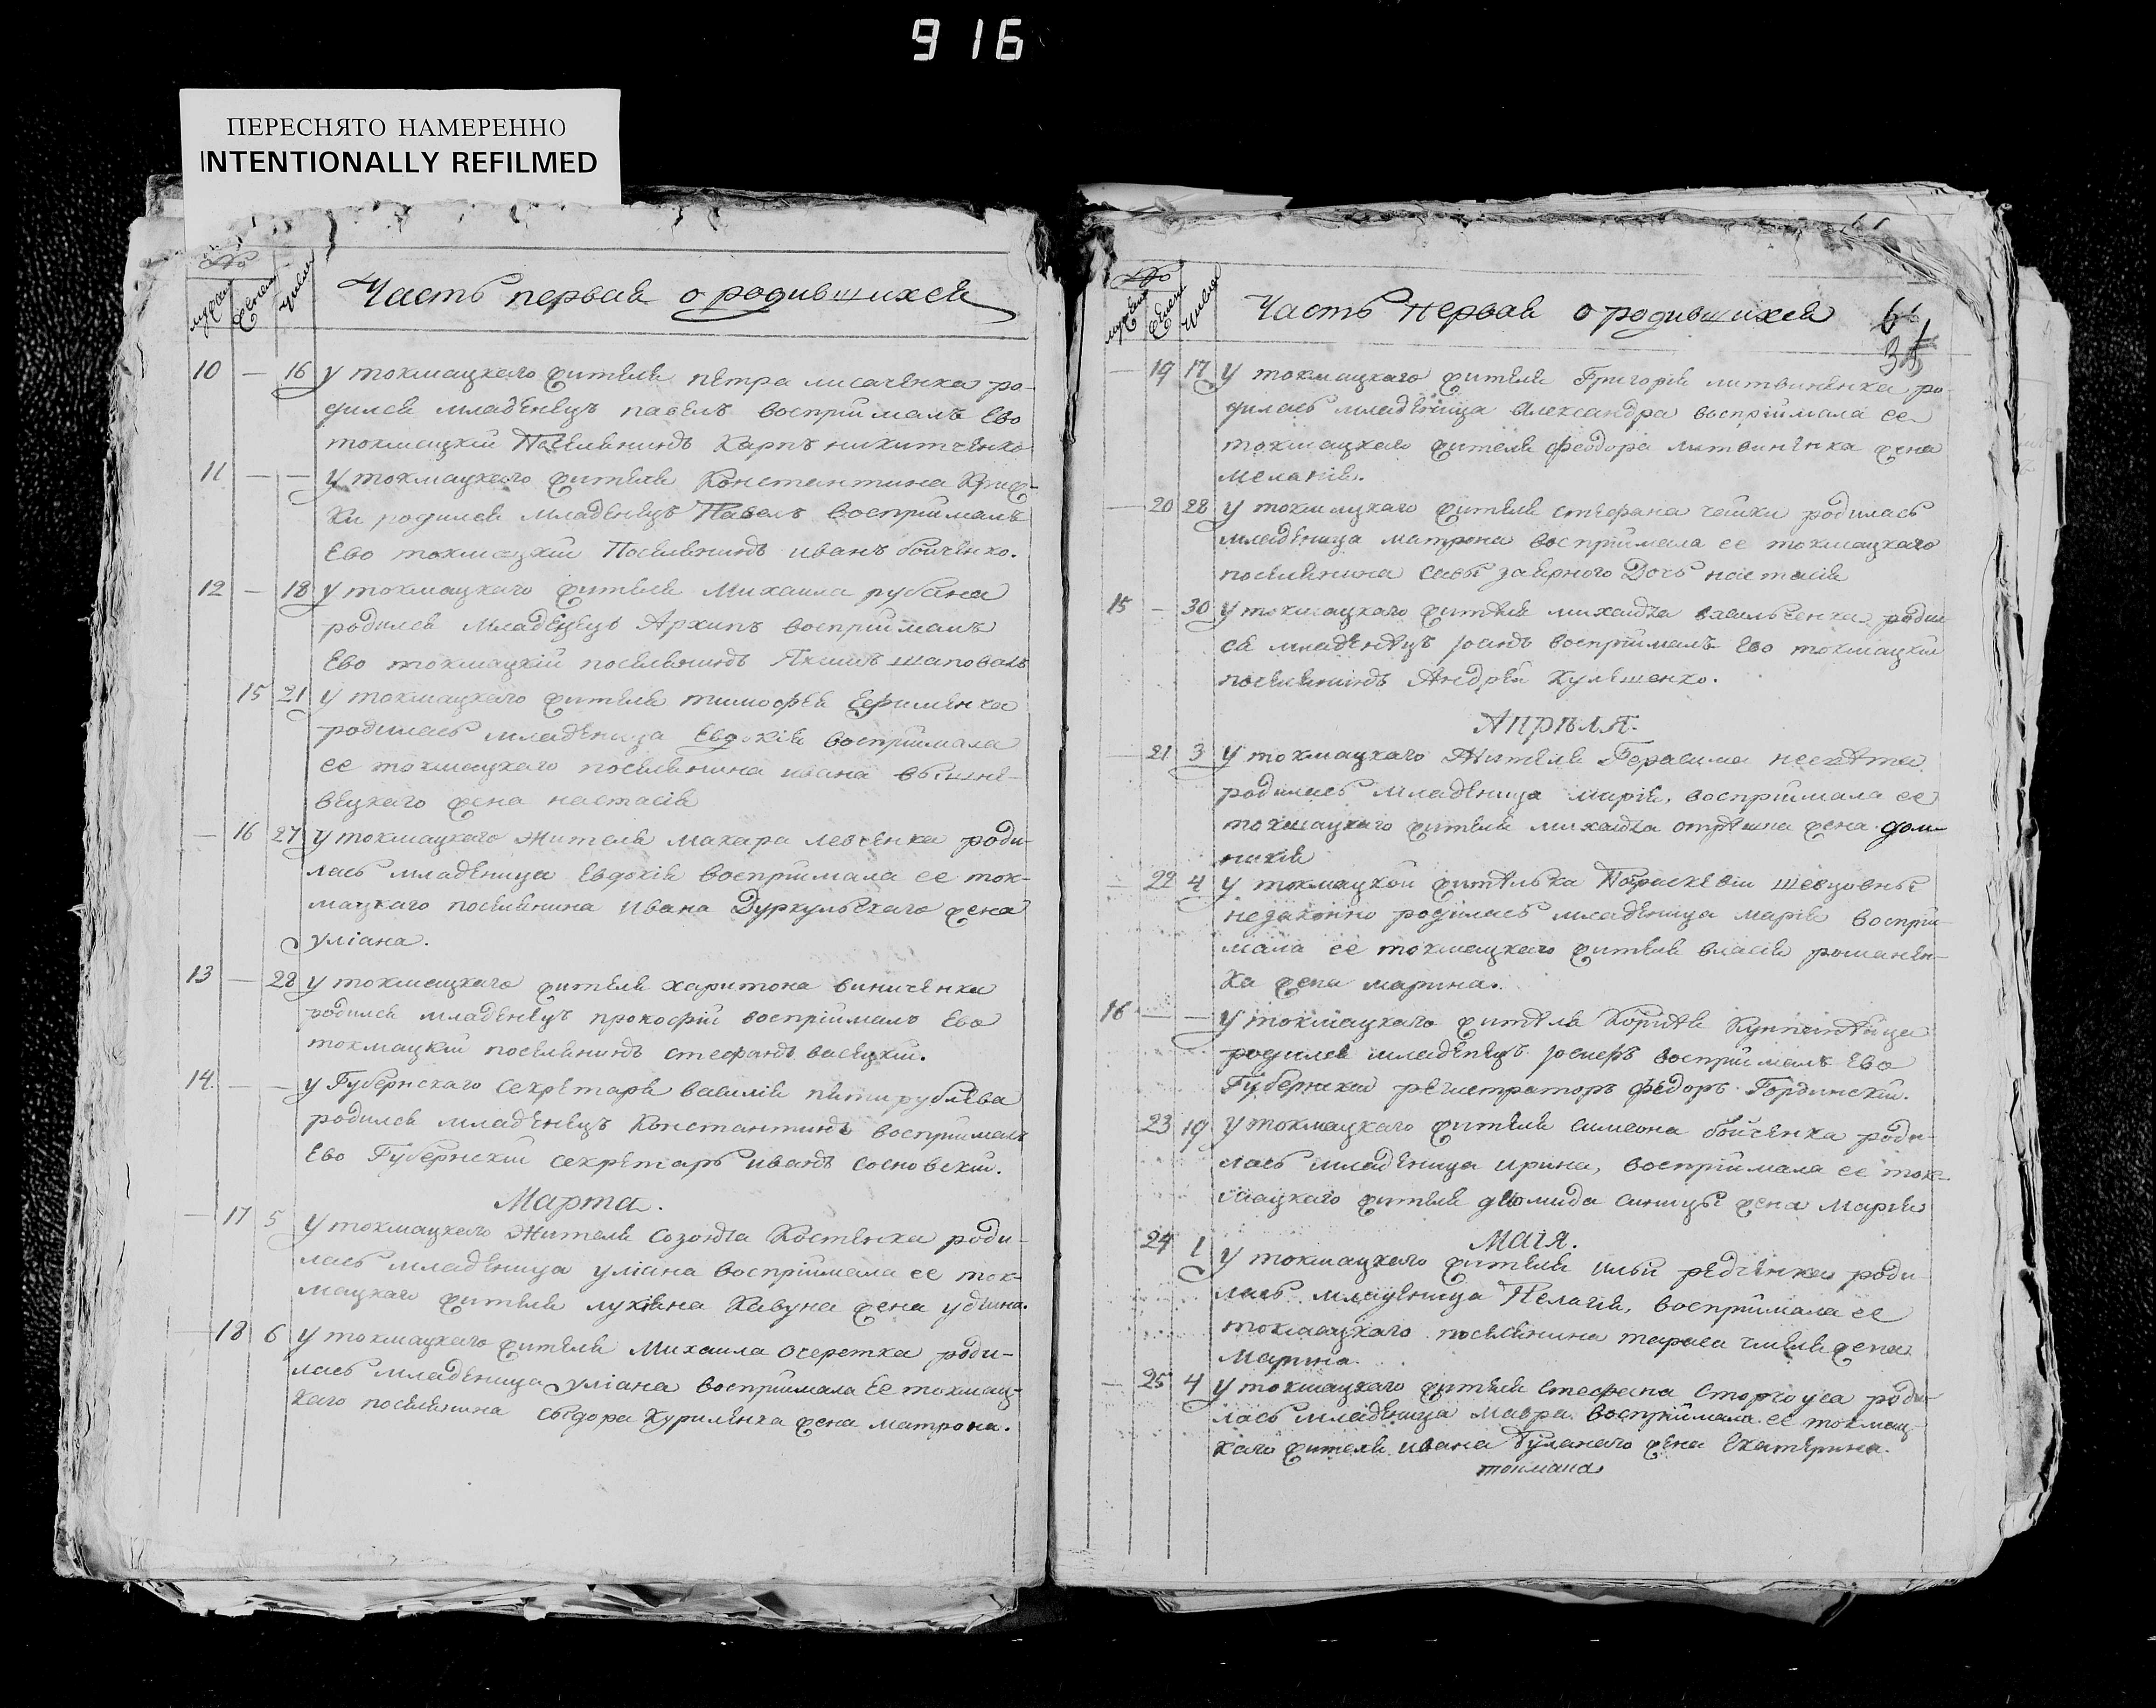 916
ПЕРЕСНЯТО НАМЕРЕННО
INTENTIONALLY REFILMED
№
мужеск женска число
Часть первая о родившихся
10 — 16 у токмацкаго жителя петра лисаченка ро-
дился младенецъ павелъ воспрiималъ Ево
токмацкiй Поселянинъ Карпъ никитченко
11 — — у токмацкаго жителя Константина
ки родился младенецъ Павелъ воспрiималъ
Ево токмацкiй Поселянинъ иванъ бойченко.
12 — 18 у токмацкаго жителя Михаила рубана
родился младенецъ Архипъ воспрiималъ
Ево токмацкiй поселянинъ Якимъ шаповалъ
15 21 у токмацкаго жителя тимофея Ефименка
родилась младеница Евдокiя воспрiимала
ее токмацкаго поселянина ивана вишне-
вецкаго жена настасiя
— 16 27 у токмацкаго жителя макара левченка роди-
лась младеница Евдокiя воспрiимала ее ток-
мацкаго поселянина ивана Дуркульскаго жена
улiана.
13 — 28 у токмацкаго жителя харитона виниченка
родился младенецъ прокофiй воспрiималъ Ево
токмацкiй поселянинъ стефанъ васецкiй.
14. — — у Губернскаго секретаря василiя пятирублева
родился младенецъ Константинъ воспрiималъ
Ево Губернскiй секретарь иванъ сосновскiй.
Марта.
— 17 5 у токмацкаго жителя созонта Костенка роди-
лась младеница улiана воспрiимала ее ток-
мацкаго жителя лукiяна Кавуна жена
— 18 6 у токмацкаго жителя Михаила очеретка роди-
лась младеница улiана воспрiимала ее токмац-
каго поселянина сидора Куриленка жена матрона.
№
мужеска женска число
Часть первая о родившихся
— 19 17 у токмацкаго жителя Григорiя литвиненка ро-
дилась младеница Александра воспрiимала ее
токмацкаго жителя феодора литвиненка жена
меланiя.
— 20 28 у токмацкаго жителя стефана чайки родилась
младеница матрона воспрiимала ее токмацкаго
поселянина савы Дочь настасiя
15 — 30 у токмацкаго жителя михаила родил
ся младенецъ iоанъ воспрiималъ Ево токмацкiй
поселянинъ Андрей Кулешенко.
Апреля.
— 21 3 у токмацкаго жителя Герасима
родилась младеница марiя, воспрiимала ее
токмацкаго жителя михаила жена дом-
никiя
— 22 4 у токмацкой жителька Параскевiи шевцовны
незаконно родилась младеница марiя воспрiи-
мала ее токмацкаго жителя власiя романен-
ка жена марина.
16 — — у токмацкаго жителя
родился младенецъ iосифъ воспрiималъ Ево
Губернскiй регистраторъ федоръ Гординскiй.
23 19 у токмацкаго жителя симеона бойченка роди-
лась младеница ирина, воспрiимала ее ток-
мацкаго жителя дiомида синицы жена марiя
Маiя.
24 1 у токмацкаго жителя ильи редченка роди
лась младеница Пелагiя, воспрiимала ее
токмацкаго поселянина тараса жена
марина.
— 25 4 у токмацкаго жителя Стефана Сторчоуса роди-
лась младеница мавра воспрiимала ее токмац-
каго жителя ивана жена Екатерина.